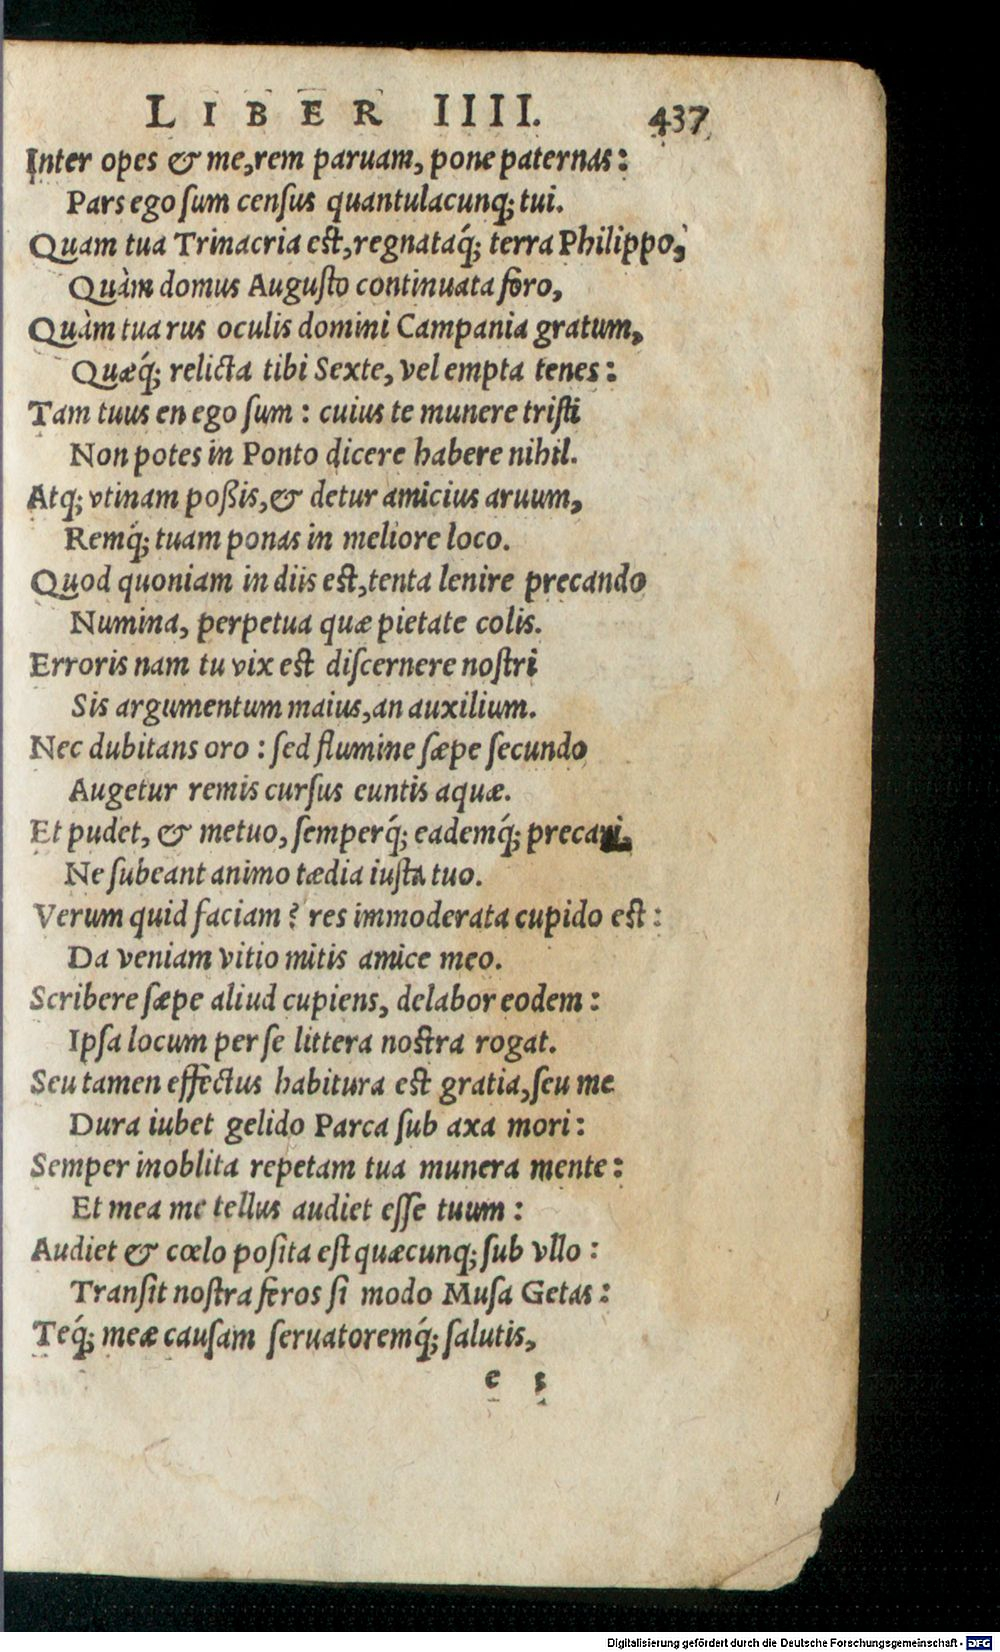 LIBER IIII. 437
Inter opes & me, rem paruam, pone paternas:
Pars ego ſum cenſus quantulacunq; tui.
Quam tua Trinacria est, regnataq́; terra Philippo,
Quàm domus Auguſto continuata foro,
Quàm tua rus oculis domini Campania gratum,
Quæq́; relicta tibi Sexte, vel empta tenes:
Tam tuus en ego ſum: cuius te munere triſti
Non potes in Ponto dicere habere nihil.
Atq; vtinam poßis, & detur amicius aruum,
Remq́; tuam ponas in meliore loco.
Quod quoniam in diis est, tenta lenire precando
Numina, perpetua quæ pietate colis.
Erroris nam tu vix est diſcernere noſtri
Sis argumentum maius, an auxilium.
Nec dubitans oro: ſed flumine ſæpe ſecundo
Augetur remis curſus euntis aquæ.
Et pudet, & metuo, ſemperq́; eademq́; precari,
Ne ſubeant animo tædia iuſta tuo.
Verum quid faciam? res immoderata cupido est:
Da veniam vitio mitis amice meo.
Scribere ſæpe aliud cupiens, delabor eodem:
Ipſa locum per ſe littera noſtra rogat.
Seu tamen effectus habitura est gratia, ſeu me
Dura iubet gelido Parca ſub axa mori:
Semper inoblita repetam tua munera mente:
Et mea me tellus audiet eſſe tuum:
Audiet & cœlo poſita eſt quæcunq; ſub vllo:
Tranſit noſtra feros ſi modo Muſa Getas:
Teq́; meæ cauſam ſeruatoremq́; ſalutis,
e 3
Digitalisierung gefördert durch die Deutsche Forschungsgemeinschaft - DFG